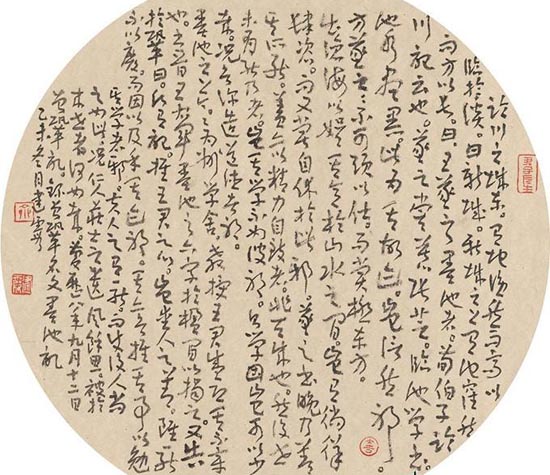 臨川之城東有地隱然而高以
臨於溪曰新城新城之上有池窪然
而方以長曰王羲之之墨池者荀伯子臨
川記云也羲之嘗慕張芝臨池學書
池水盡黑此為其故跡豈信然邪
方羲之之不可強以仕而嘗極東方
出滄海以娛其意於山水之間豈有徜徉
肆恣而又嘗自休於此邪羲之之書晚乃善
則其所能蓋亦以精力自致者非天成也然後世
未有能及者豈其學不如彼邪則學固豈可以少
哉況欲深造道德者邪
墨池之上今為州學舍教授王君盛恐其不章
也書晉王右軍墨池之六字於楹間以揭之又告
於鞏曰願有記推王君之心豈愛人之善雖一能
不以廢而因以及乎其跡邪其亦欲推其事以勉
其學者邪夫人之有一能而使後人尚
之如此況仁人莊士之遺風餘思被於
來世者何如哉慶曆八年九月十二日
曾鞏記錄曾鞏名文墨池記
乙未冬月建